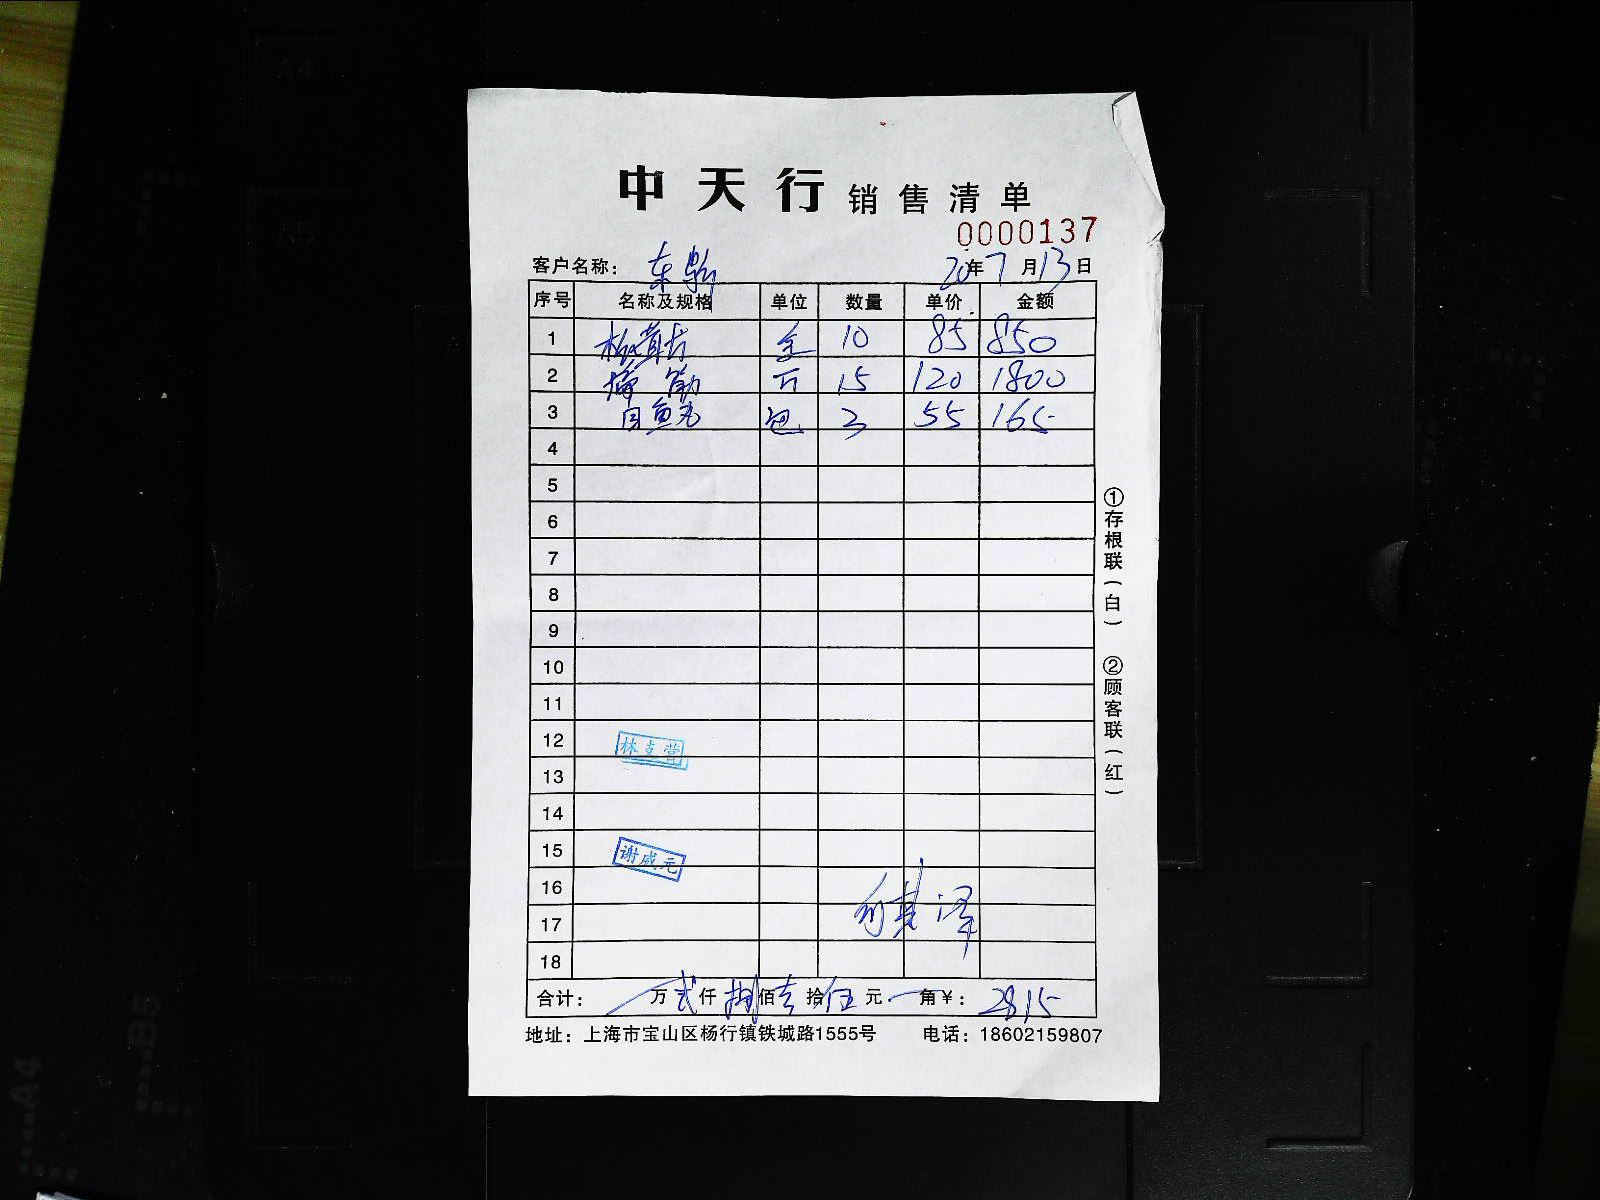 中天行 销售清单
0000137
客户名称： 东 20年7月13日
序号 名称及规格 单位 数量 单价 金额
1 10 85 850
2 筋 斤 15 120 1800
3 目鱼丸 包 3 55 165
4
5
6
7
8
9
10
11
12
林支营
13
14
15
谢咸元
16
17
18
合计： 万贰仟捌佰壹拾伍元 角￥： 2815
地址：上海市宝山区杨行镇铁城路1555号 电话：18602159807
①存根联（白） ②顾客联（红）